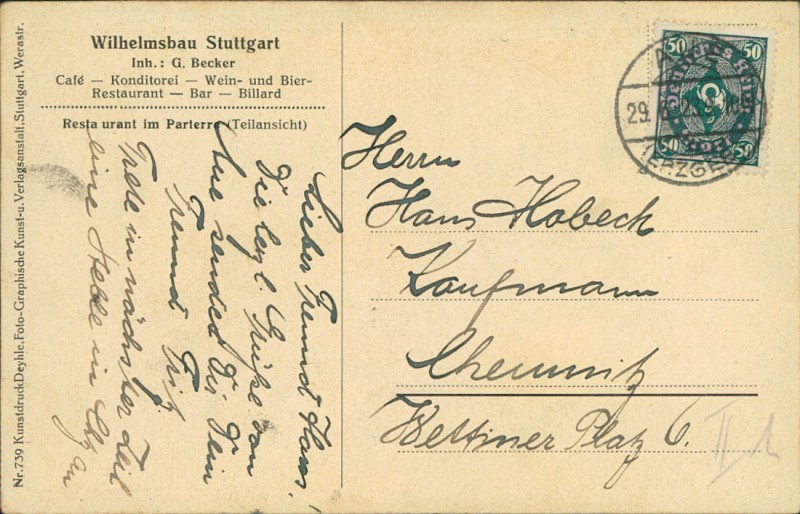 Wilhelmsbau Stuttgart
Inh.: G. Becker
Café — Konditorei — Wein- und Bier-
Restaurant — Bar — Billard
Restaurant im Parterre (Teilansicht)
Nr.739 Kunstdruck Deyhle. Foto-Graphische Kunst-u. Verlagsanstalt, Stuttgart, Werastr.
Lieber Freund Hans!
Die herzl. Grüße von
Aue sendet Dir Dein
Freund Fritz
Trete in nächster Zeit
eine Stelle in Chtz an
Herrn
Hans Habeck
Kaufmann
Chemnitz
Wettiner Platz 6.
50 Deutsches Reich 50
50 Post 50
29.
(ERZGEB
II